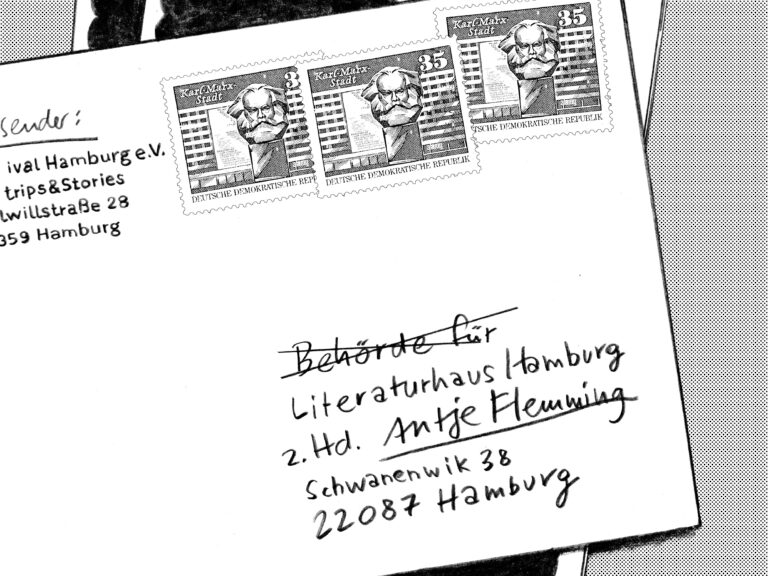 sender:
ival Hamburg e.V.
trips&Stories
lwillstraße 28
359 Hamburg
Karl-Marx-
Stadt
3
DEUTSCHE DEMOKRATISCHE REP
Karl-Marx-
Stadt
35
DEUTSCHE DEMOKRATISCHE REPUBLIK
Karl-Marx-
Stadt
35
TSCHE DEMOKRATISCHE REPUBLIK
Behörde für
Literaturhaus Hamburg
z.Hd. Antje Flemming
Schwanenwik 38
22087 Hamburg